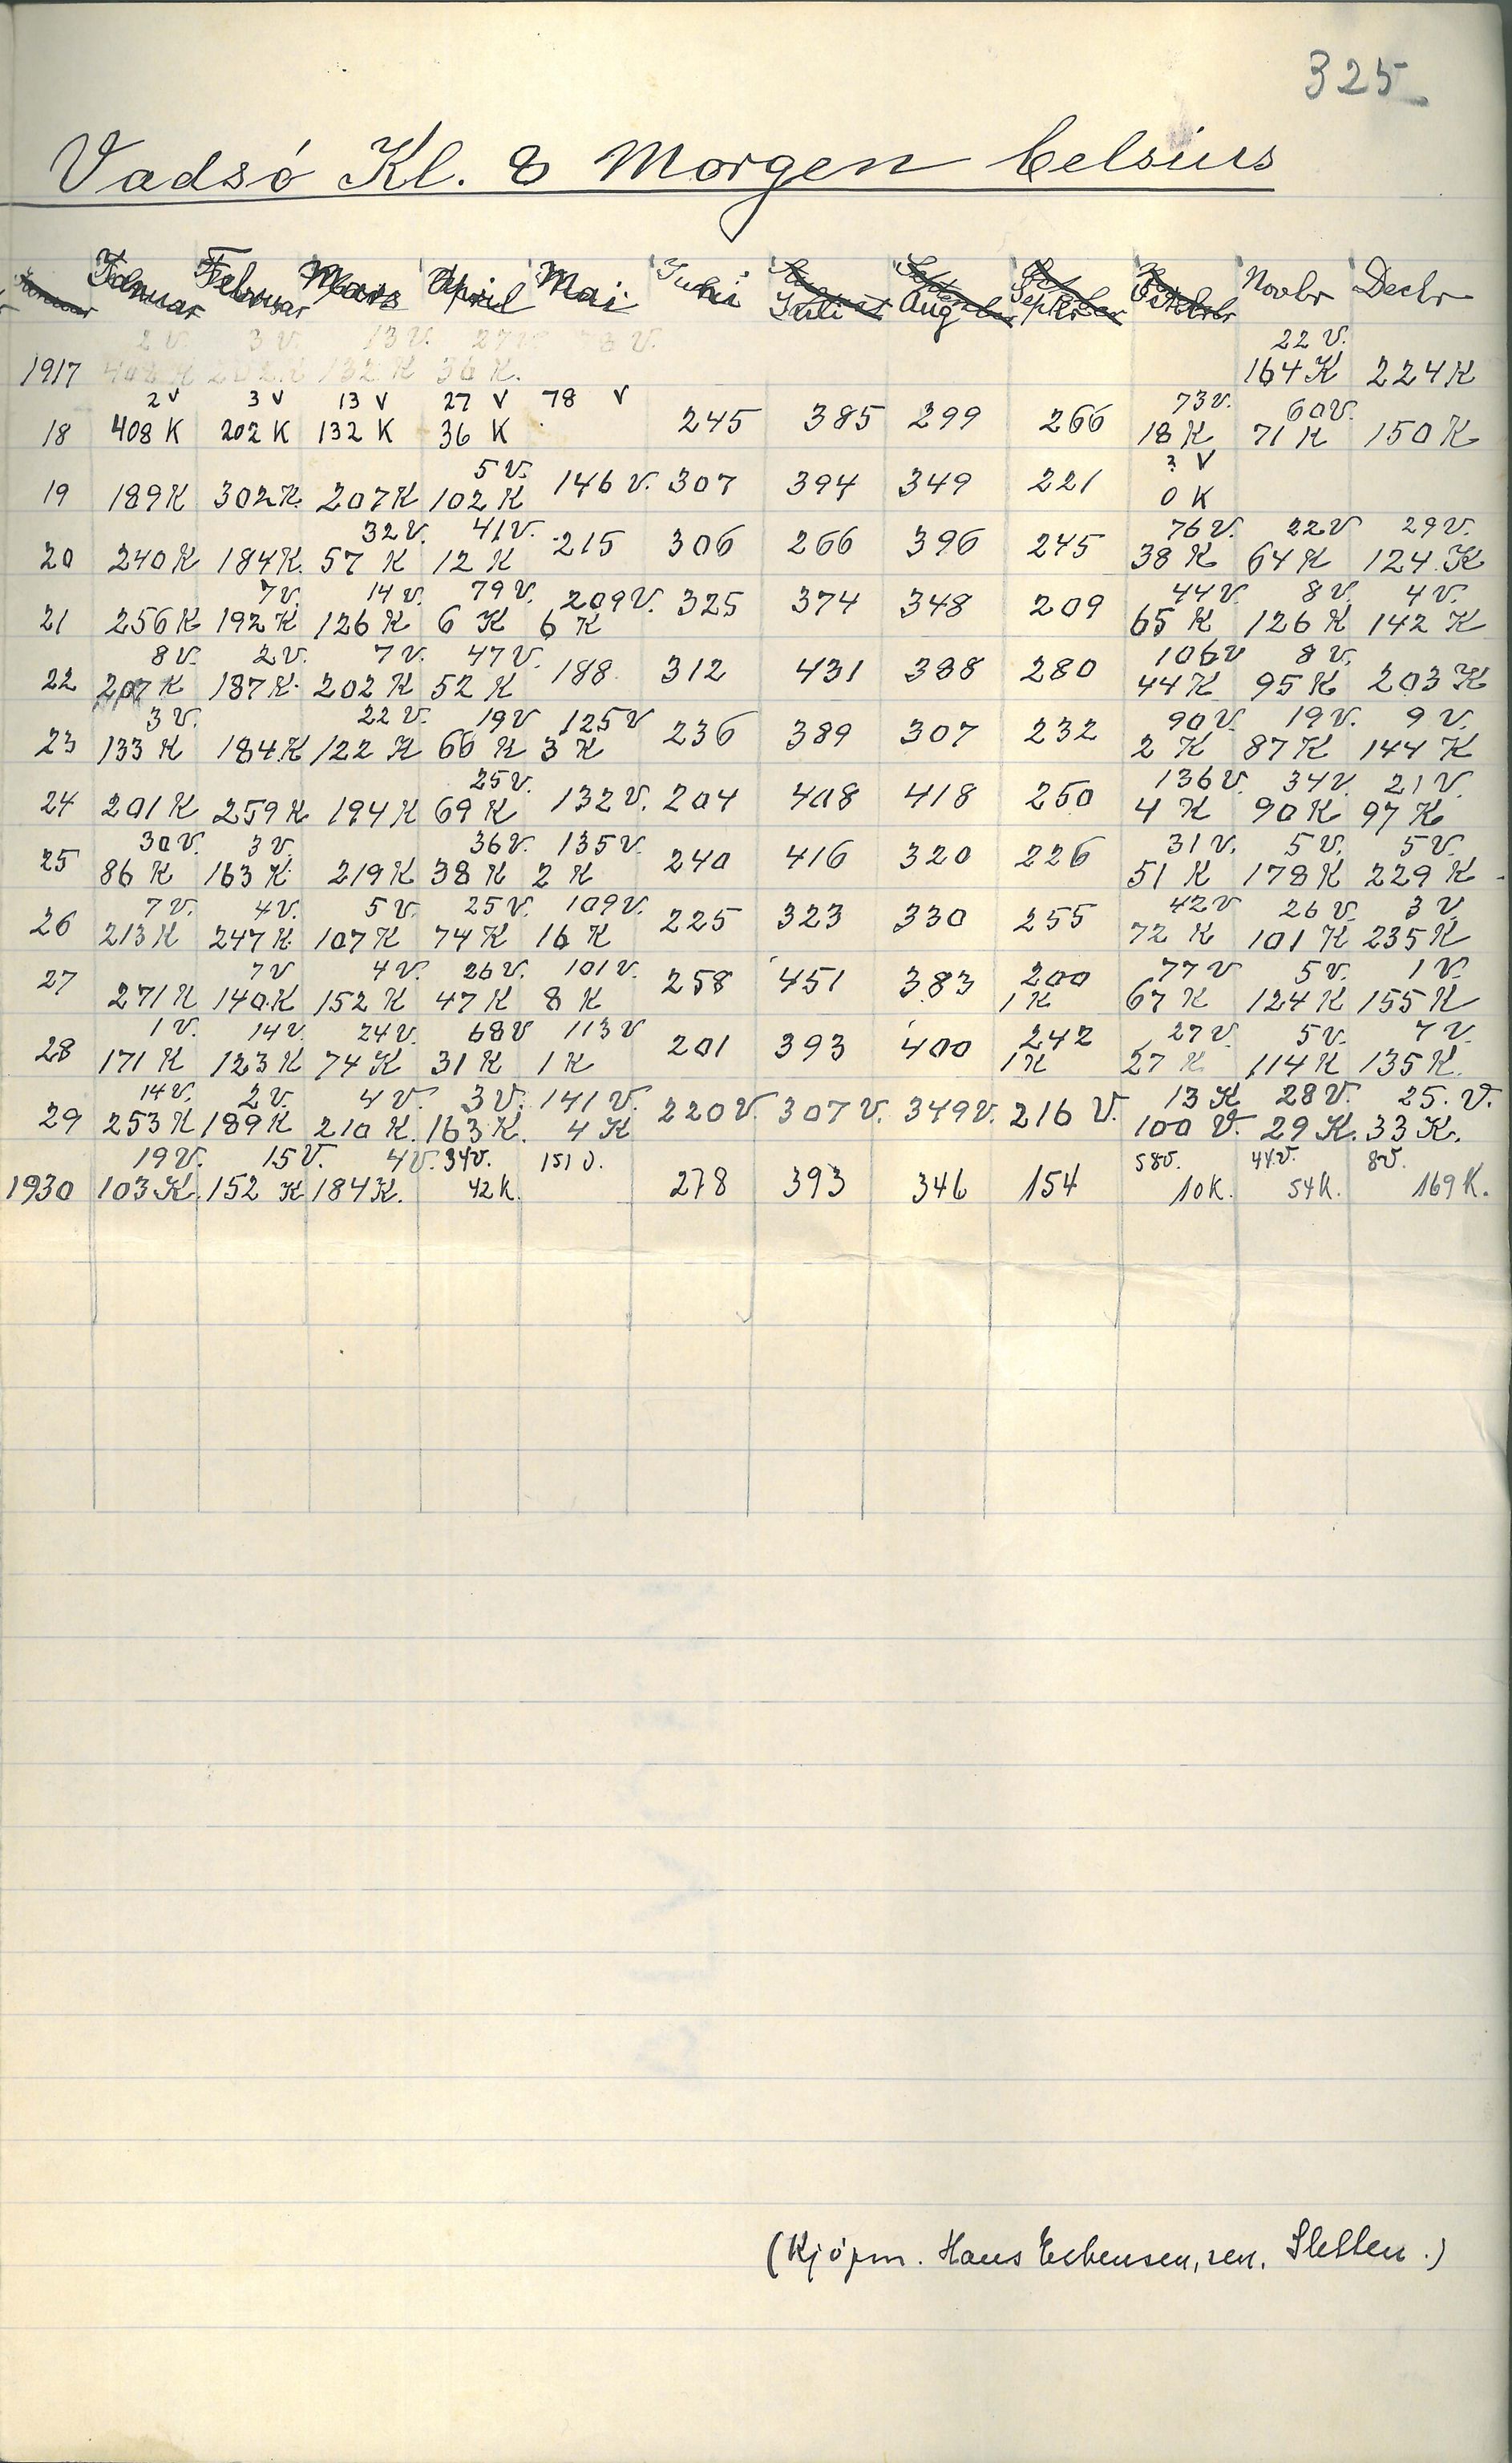 325
Vadsö Kl. 8 Morgen Celsius
Januar Februar Mars April Mai Juni Juli Aug Septbr Oktobr Novbr Decbr
2 V. 3 V. 13 V. 27 V. 78 V. 22 V.
1917 408 K 202 K 132 K 36 K. 164 K 224 K
2 V 3 V 13 V 27 V 78 V 73 V. 60 V.
18 408 K 202 K 132 K 36 K 245 385 299 266 18 K 71 K 150 K
5 V. V
19 189 K 302 K. 207 K 102 K 146 V. 307 394 349 221 0 K
32 V. 41 V. 76 V. 22 V 29 V.
20 240 K 184 K. 57 K 12 K 215 306 266 396 245 38 K 64 K 124 K
7 V. 14 V. 79 V. 209 V. 44 V. 8 V. 4 V.
21 256 K 192 K 126 K 6 K 6 K 325 374 348 209 65 K 126 K 142 K
8 V. 2 V. 7 V. 47 V. 106 V 8 V.
22 207 K 187 K. 202 K 52 K 188 312 431 388 280 44 K 95 K 203 K
3 V. 22 V. 19 V 125 V 90 V. 19 V. 9 V.
23 133 K 184 K 122 K 66 K 3 K 236 389 307 232 2 K 87 K 144 K
25 V. 136 V. 34 V. 21 V.
24 201 K 259 K 194 K 69 K 132 V. 204 408 418 260 4 K 90 K 97 K
30 V. 3 V. 36 V. 135 V. 31 V. 5 V. 5 V.
25 86 K 163 K. 219 K 38 K 2 K 240 416 320 226 51 K 178 K 229 K
7 V. 4 V. 5 V. 25 V. 109 V. 42 V 26 V. 3 V.
26 213 K 247 K. 107 K 74 K 16 K 225 323 330 255 72 K 101 K 235 K
7 V 4 V. 26 V. 101 V. 77 V 5 V. 1 V.
27 271 K 140 K 152 K 47 K 8 K 258 451 383 200 1 K 67 K 124 K 155 K
1 V. 14 V. 24 V. 68 V 113 V 27 V. 5 V. 7 V.
28 171 K 123 K 74 K 31 K 1 K 201 393 400 242 1 K 27 K 114 K 135 K.
14 V. 2 V. 4 V. 3 V. 141 V. 13 K 28 V. 25. V.
29 253 K 189 K 210 K. 163 K. 4 K 220 V. 307 V. 349 V. 216 V. 100 V. 29 K. 33 K.
19 V. 15 V. 4 V. 34 V. 151 V. 58 V. 44 V. 8 V.
1930 103 K. 152 K 184 K. 42 K. 278 393 346 154 10 K. 54 K. 169 K.
(Kjöpm. Hans Esbensen, sen.